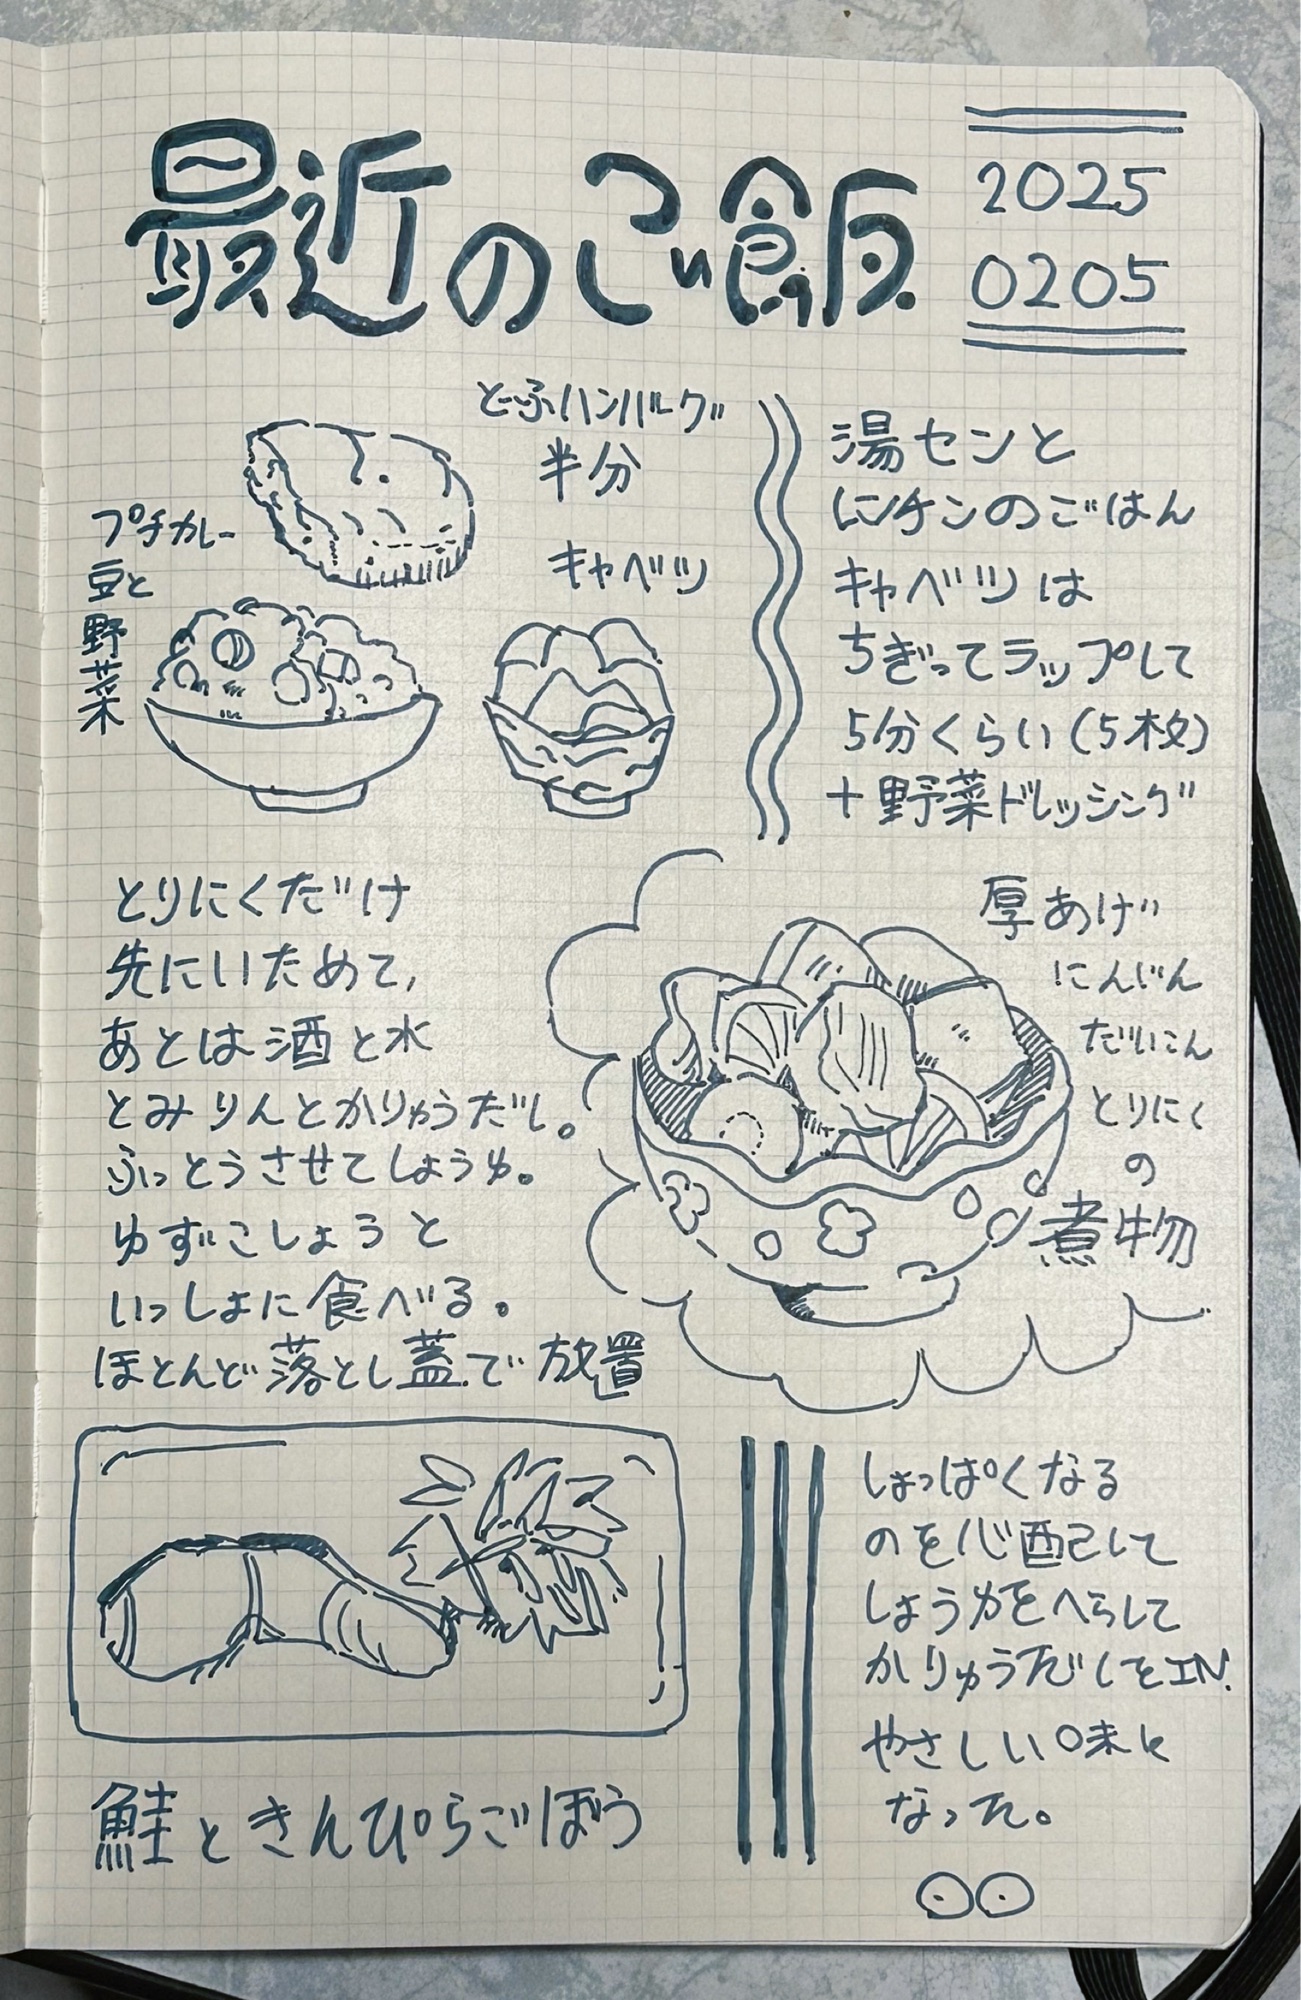 最近のご飯
2025
0205
とーふハンバーグ
半分
プチカレー
豆と
野菜
キャベツ
湯センと
レンチンのごはん
キャベツは
ちぎってラップして
5分くらい(5枚)
+野菜ドレッシング
とりにくだけ
先にいためて、
あとは酒と水
とみりんとかりゅうだし。
ふっとうさせてしょうゆ。
ゆずこしょうと
いっしょに食べる。
ほとんど落とし蓋で放置
厚あげ
にんじん
だいこん
とりにく
の
煮物
しょっぱくなる
のを心配して
しょうゆをへらして
かりゅうだしをIN.
やさしい味に
なった。
鮭ときんぴらごぼう